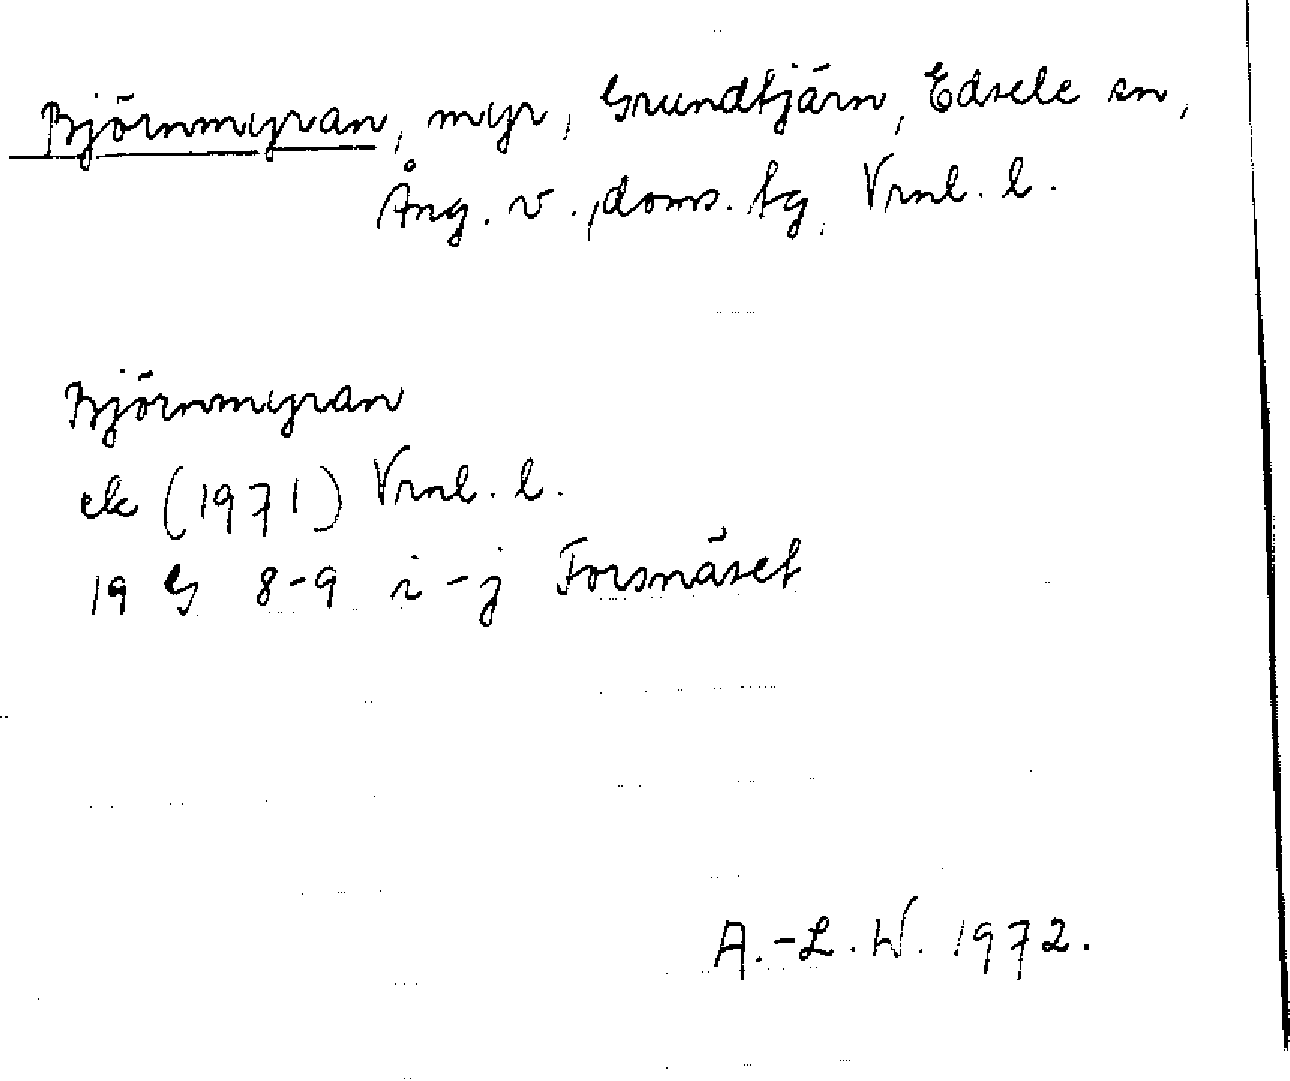 Björnmyran, myr, Grundtjärn, Edsele sn,
Ång. v., doms. tg, Vrnl. l.
Björnmyran
ek (1971) Vrnl. l.
19 G 8-9 i-j Forsnäset
A.-L. W. 1972.